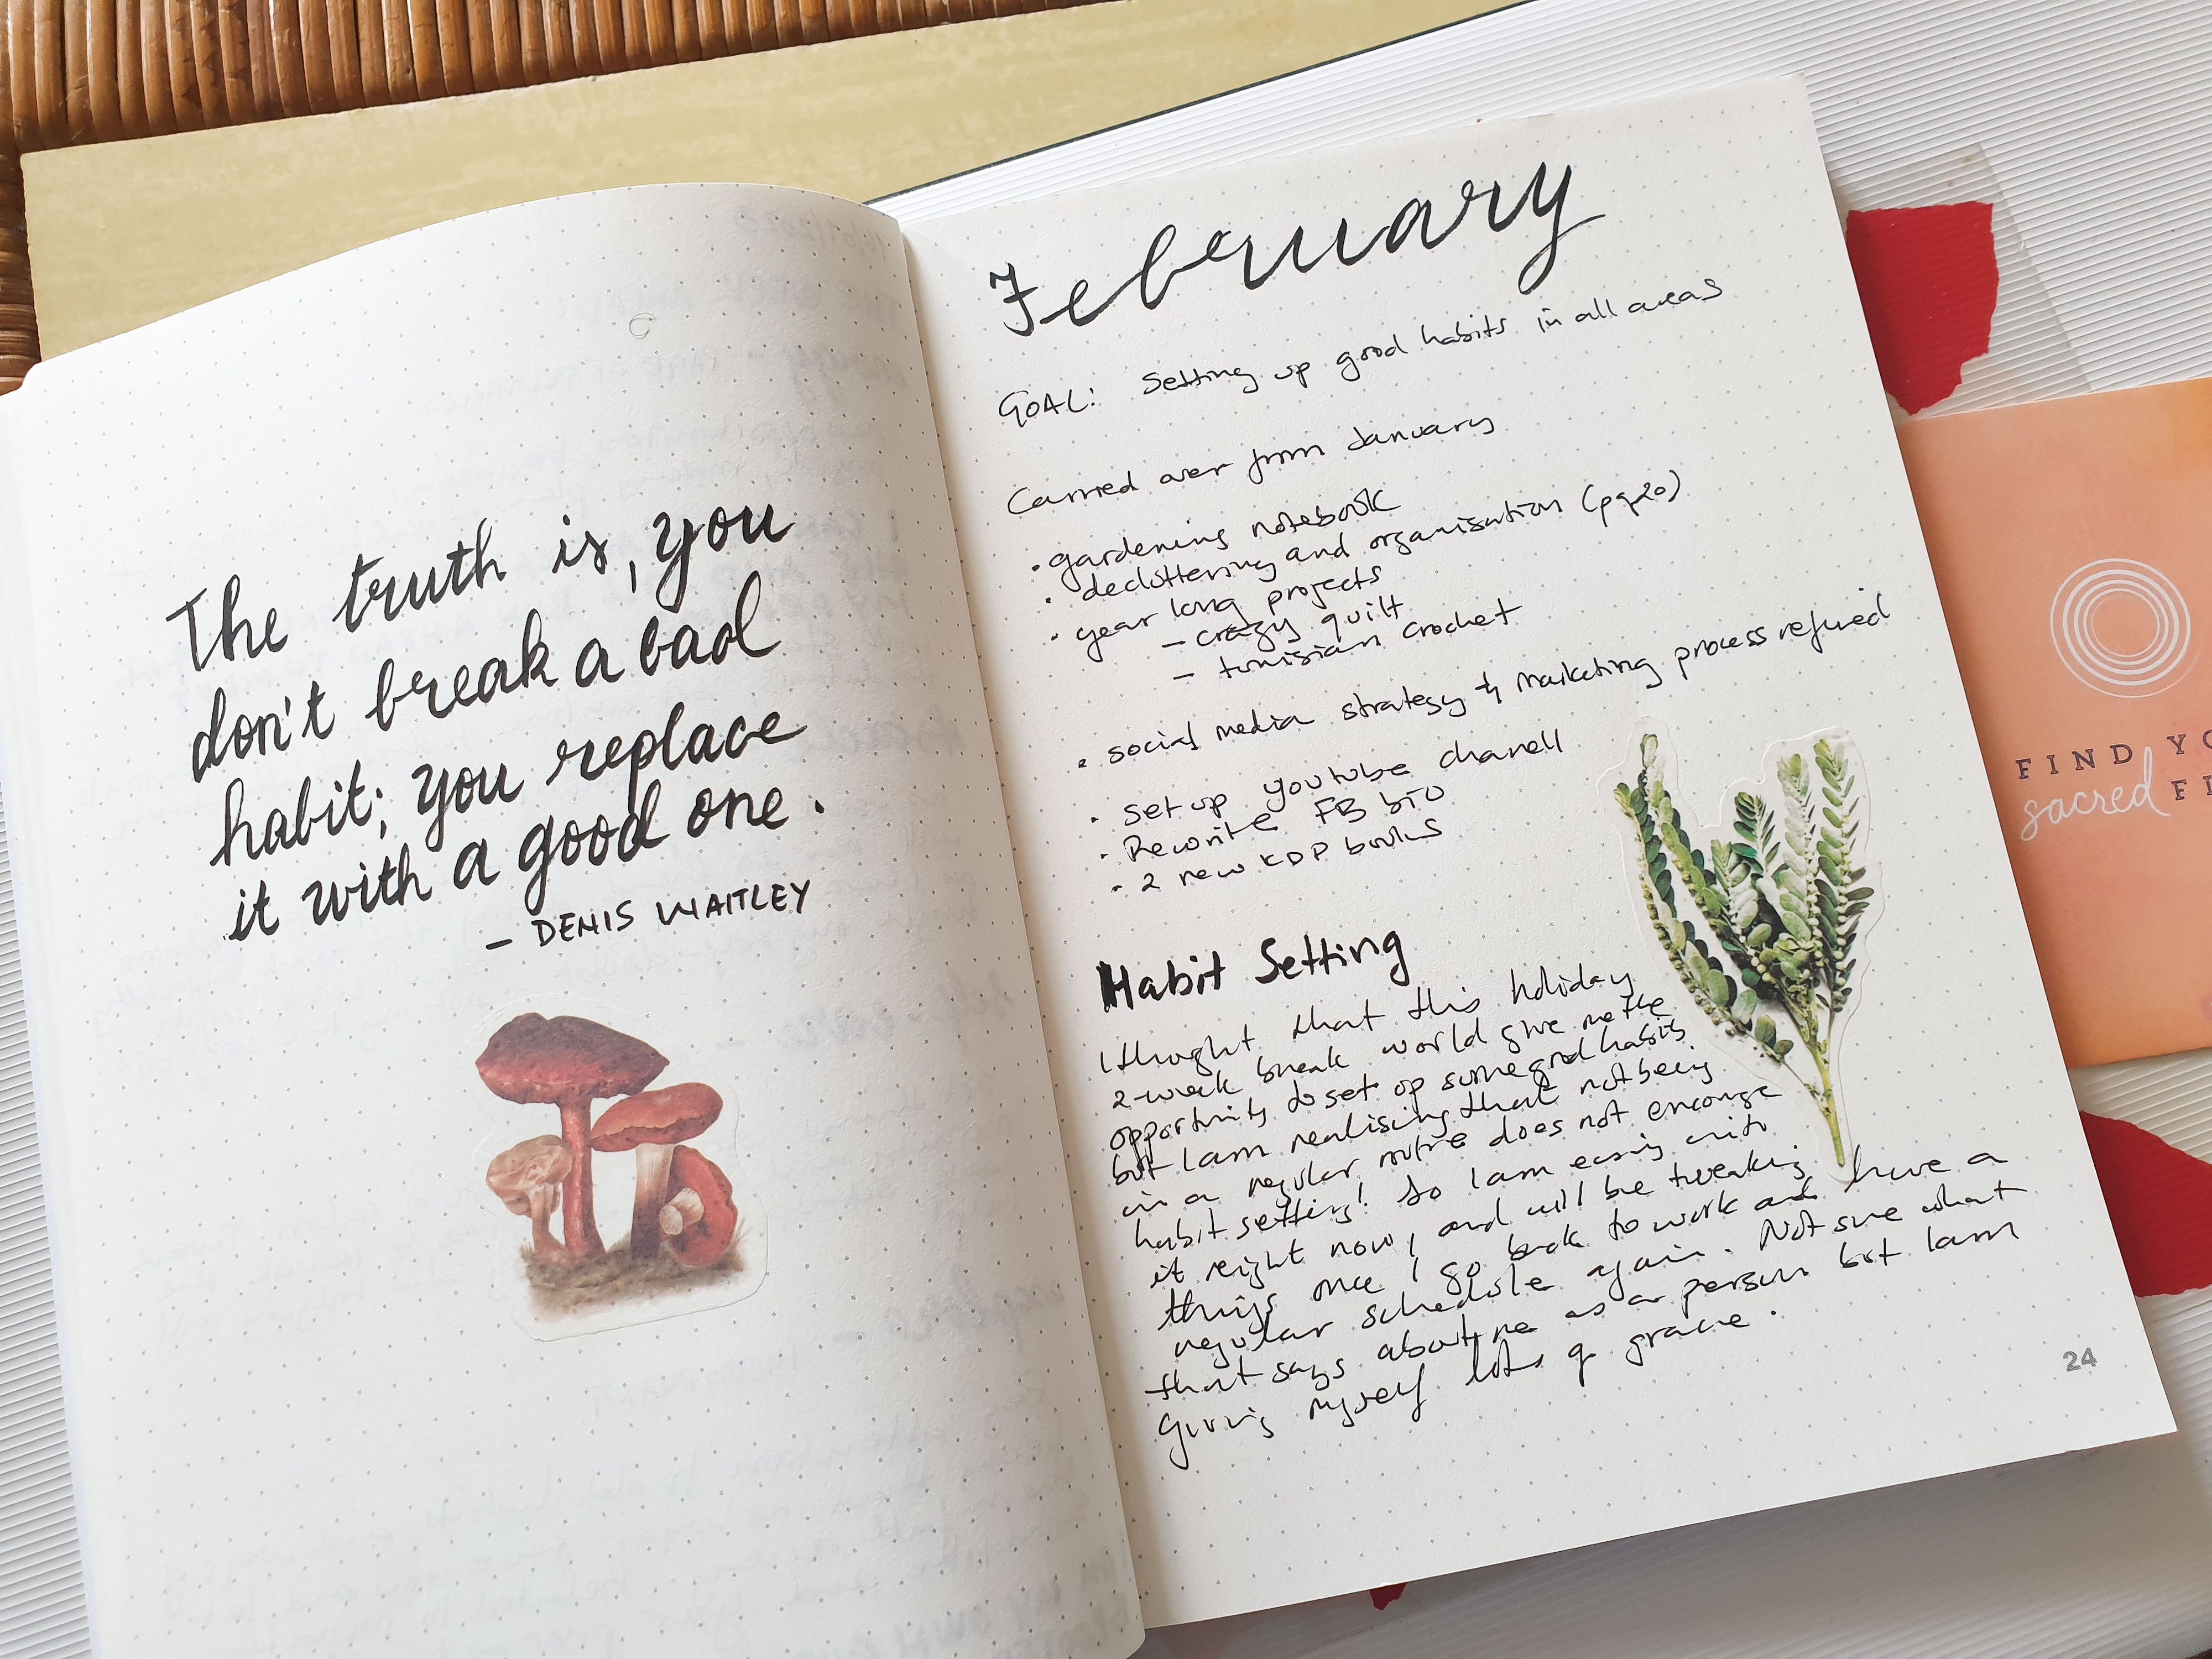 The truth is, you
don't break a bad
habit; you replace
it with a good one.
- DENIS WAITLEY
February
GOAL: Setting up good habits in all areas
Carried over from January
• gardening notebook
• decluttering and organisation (pg20)
• year long projects
- crazy quilt
- tunisian crochet
• social media strategy & marketing process refined
• set up youtube chanell
• Rewrite FB bio
• 2 new KDP books
Habit Setting
I thought that this holiday
2-week break would give me the
opportunity to set up some good habits
but I am realising that not being
in a regular routine does not encourage
habit setting! So I am easing into
it right now, and will be tweaking
things once I go back to work and have a
regular schedule again. Not sure what
that says about me as a person but I am
Giving myself lots of grace.
24
FIND YO
sacred